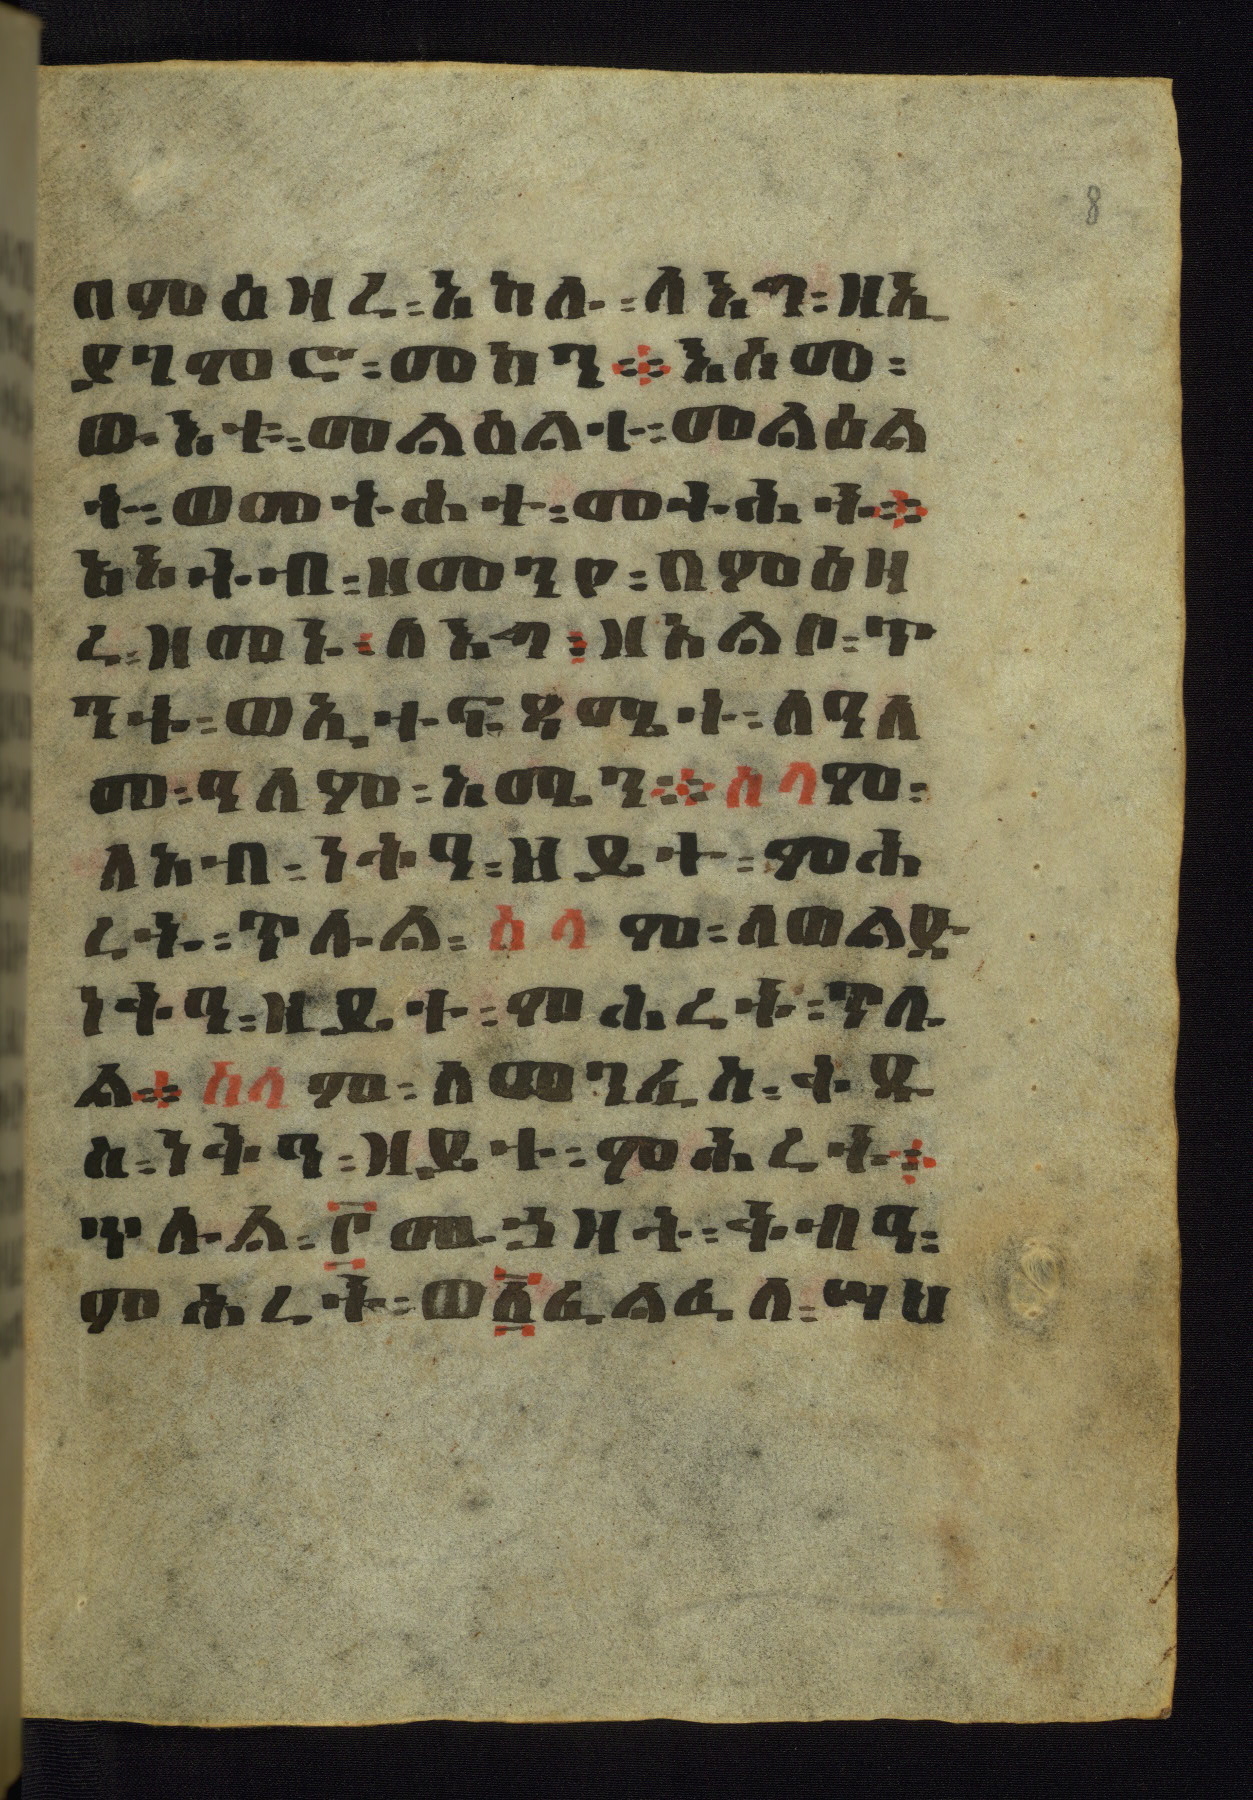 8
በምዕዝረ፡ እከሉ፡ ለእጓ፡ ዘኢ
ያንምሮ፡ መካን፨ እስመ፡
ውእቱ፡ መልዕልተ፡ መልዕል
ት፡ ወመትሕተ፡ መትሕት፨
አአትብ፡ ዘመንየ፡ በምዕዝ
ረ፡ ዝመኑ፡ ለእጓ፡ ዘአልቦ፡ ጥ
ንት፡ ወኢተፍጻሜት፡ ለዓለ
መ፡ ዓለም፡ አሜን፨ ሰላም፡
ለአብ፡ ነቅዓ፡ ዝይት፡ ምሕ
ረት፡ ጥሉል፡ ሰላም፡ ለወልድ
ነቅዓ፡ ዘይት፡ ምሕረት፡ ጥሉ
ል፨ ሰላም፡ ለመንፈስ፡ ቅዱ
ስ፡ ነቅዓ፡ ዘይት፡ ምሕረት፨
ጥሉል፡ ፫ መኀዝት፡ ቅብዓ፡
ምሕረት፡ ወ፩ ፈልፈለ፡ ሣህ